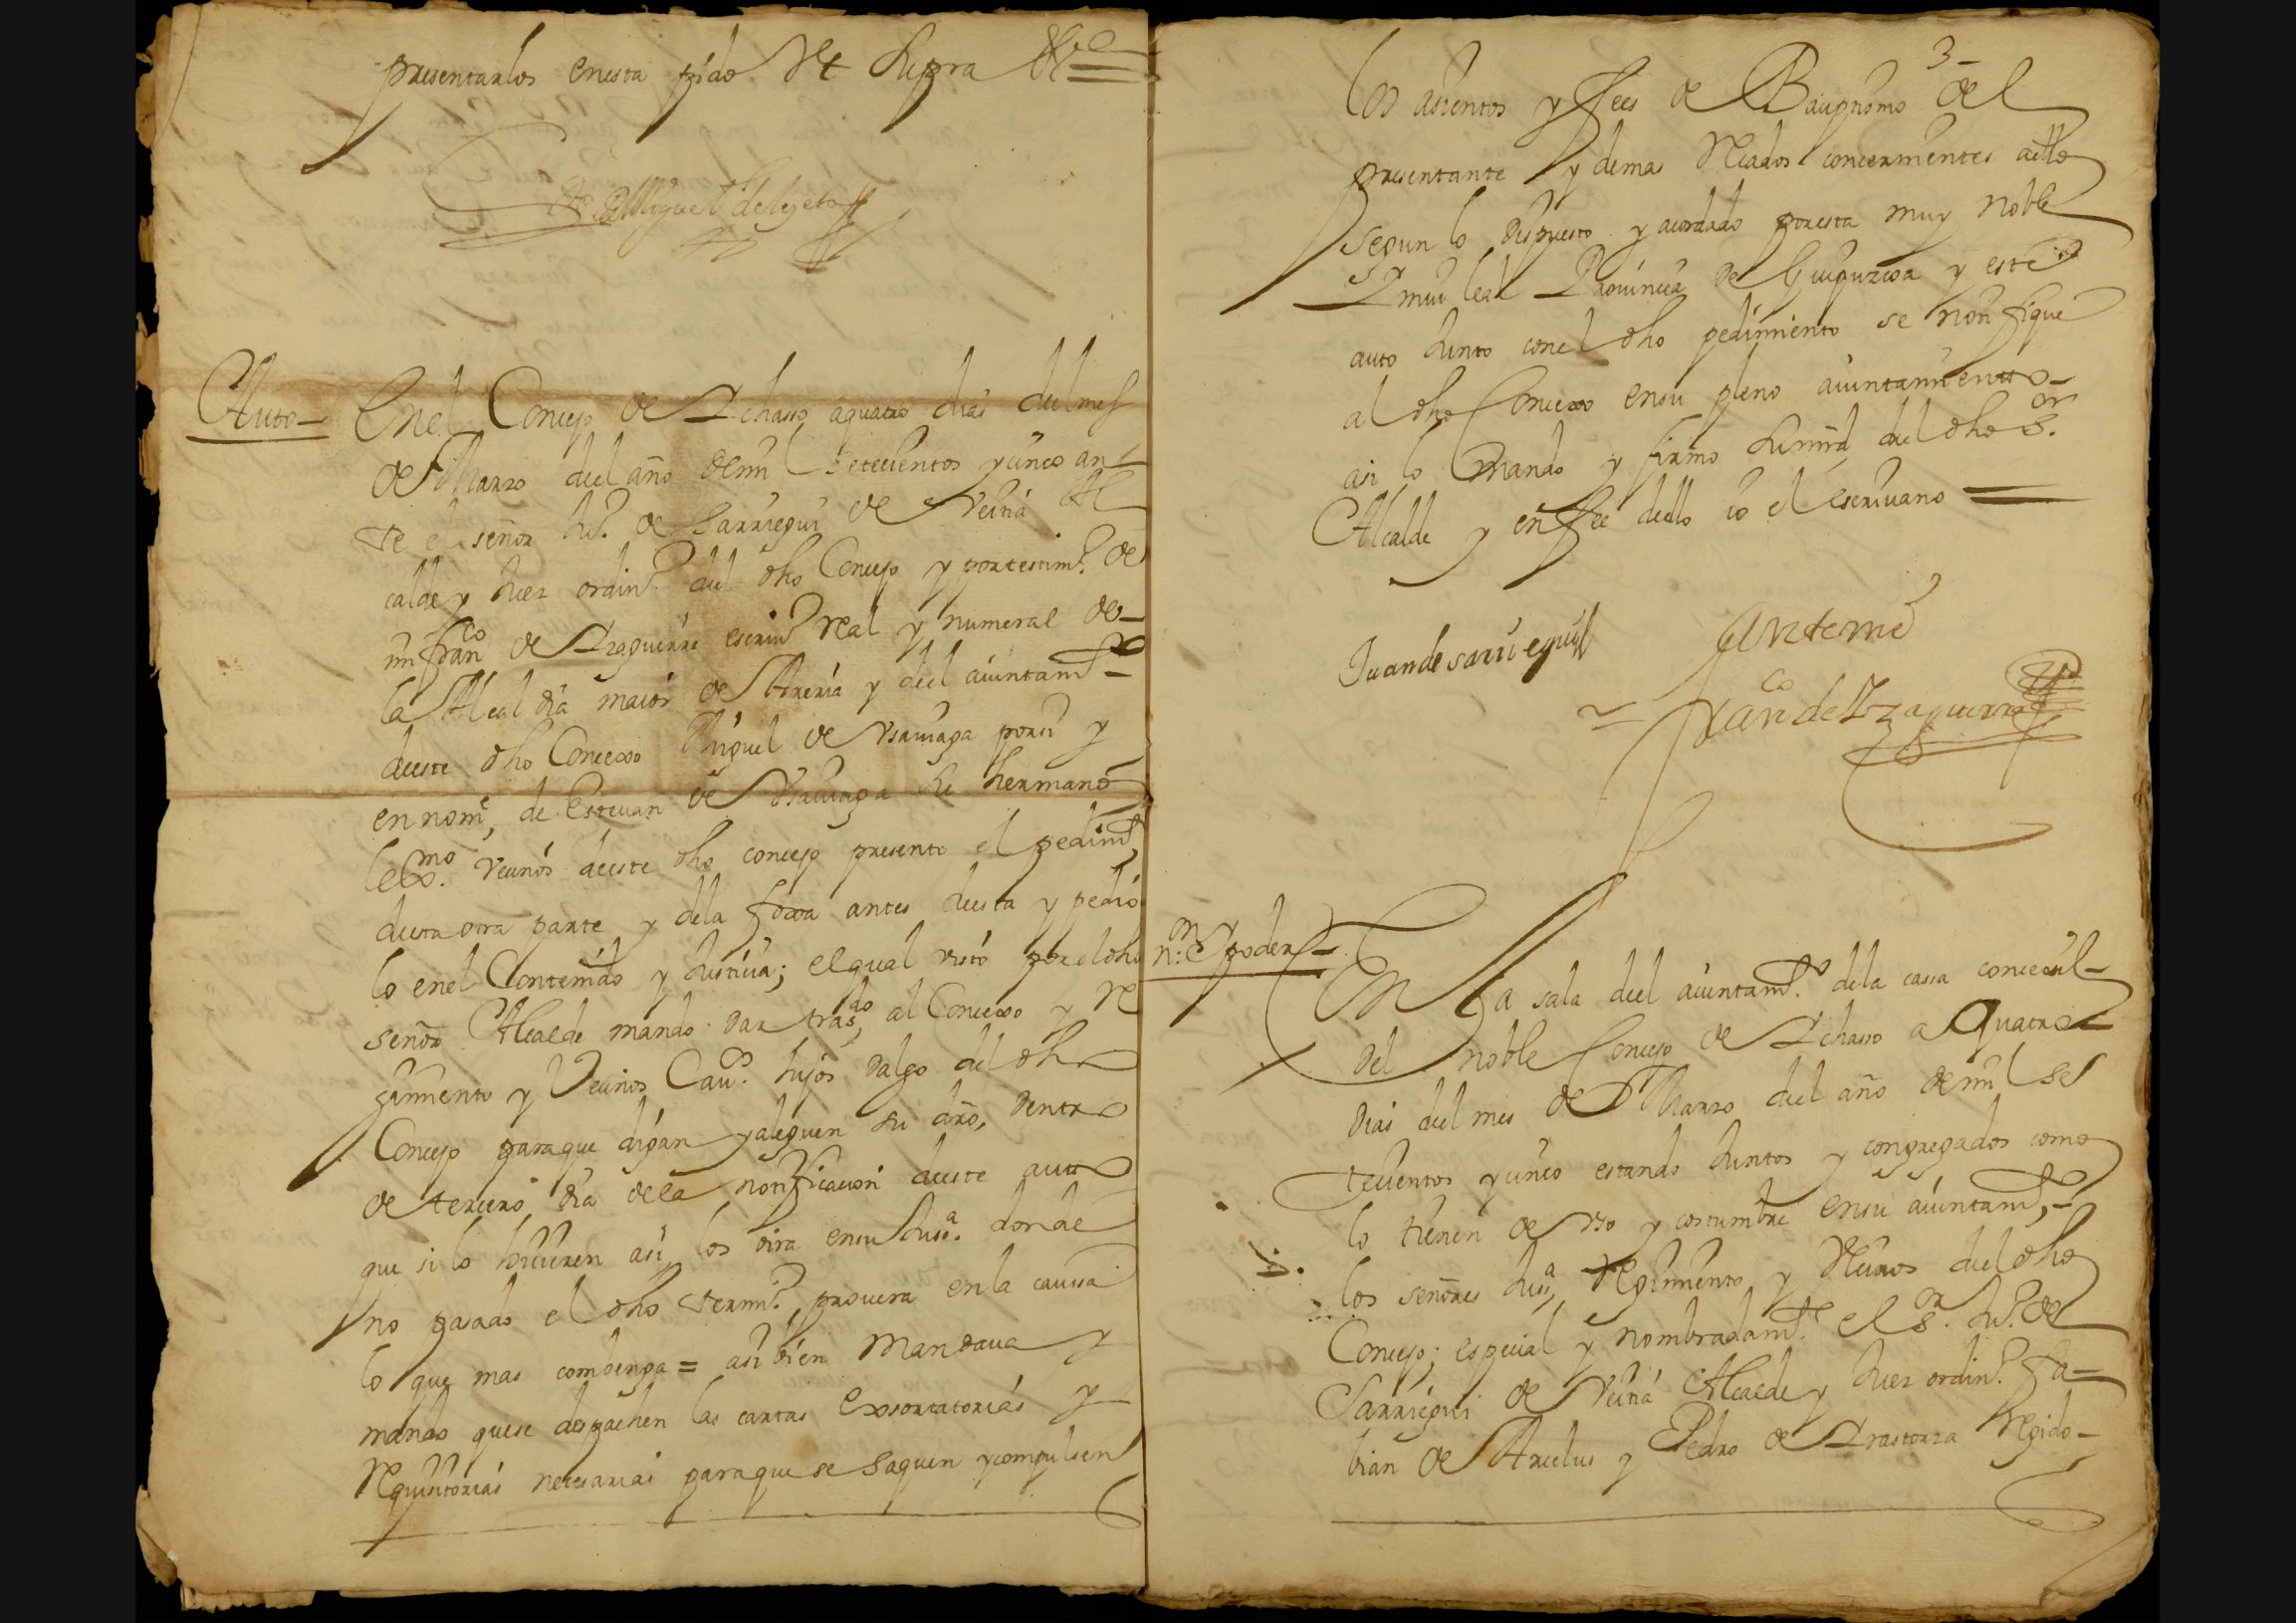 presentarlos en esta pido Vt Supra &c
Miguel de
Auto
En el Concejo de Ichasso a quatro dias del mes
de Marzo del año de mil setecientos y cinco an
te el señor Ju.º de Sarriegui de Vecina Al
calde y Juez ordin.º del dho Concejo y por testim.º de
mi Fran.co de Izaguirre escriu.º Real y numeral de
la Alcaldia maior de Areria y del aiuntam.to
deeste dho Concexo Miguel de Vsauiaga por si y
en nom.e de Esteuan de Vsauiaga su hermano
lex.mo vecinos deeste dho concejo presento el pedim.to
deesta otra parte y dela foxa antes deesta y pedio
lo enel Contenido y Justicia; el qual visto por el dho
señor Alcalde mando dar tras.do al Concexo y Re
gimiento y Vecinos Cau.os hijos dalgo del dho
Concejo para que digan y aleguen su dro, dentro
de tercero dia dela notificacion deeste auto
que si lo hicieren asi los oira en su Jus.a donde
no pasado el dho termi.º prouera en la caussa
lo que mas combenga = asi bien Mandaua y
mando que se despachen las cartas Exsortatorias y
Requisitorias necesarias para que se saquen y compulsen
3
los asientos y fees de Baupttismo del
presentante y demas Recados concernientes a ello
segun lo dispuesto y acordado por esta muy noble
y mui leal Prouincia de Guipuzcoa y este
auto Junto con el dho pedimiento se notifique
al dho Concexo en su pleno aiuntamiento
asi lo Mando y firmo su mrd del dho s.or
Alcalde y en fee deello io el escriuano
Juan de sarriegui
Ante mi
Fran.co de Yzaguirre
n.on y poder
En La sala del aiuntam.to dela casa concexil
del noble Concejo de Ichasso a Quatro
dias del mes de Marzo del año de mil se
tecientos y cinco estando Juntos y congregados como
lo tienen de vso y costumbre en su aiuntam.to
los señores Jus.a Regimiento y Vecinos del dho
Concejo; especial y nombradam.te el s.or Ju.º de
Sarriegui de Vecina Alcalde y Juez ordin.º Fa
bian de Arcelus y Pedro de Irastorza Regido